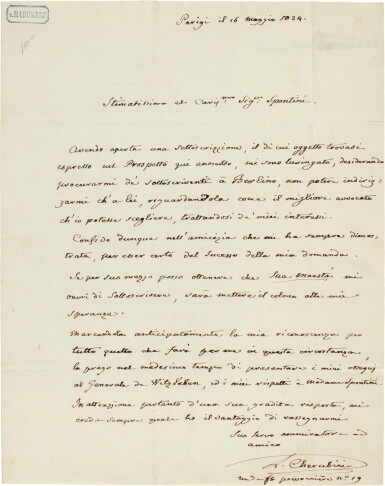 v. RADOWITZ
Parigi il 16 maggio 1824.
Stimatissimo et Cariss.mo Sig.r Spontini.
Avendo aperta una sottoscrizione, il di cui oggetto trovasi
espresso nel Prospetto qui annesso, mi sono lusingato, desiderando
procurarmi de' sottoscriventi a Berlino, non potere indiriz-
zarmi ch'a lei, riguardandola come il migliore avvocato
ch'io potessi scegliere, trattandosi de' miei interessi.
Confido dunque nell'amicizia che mi ha sempre dimos-
trata, per esser certo del successo della mia domanda.
Se per suo mezzo posso ottenere che Sua Maestà mi
onori di sottoscrivere, sarà mettere il colmo alla mia
speranza.
Marcandola anticipatamente la mia riconoscenza per
tutto quello che farà per me in questa circostanza,
la prego nel medesimo tempo di presentare i miei ossequj
al Generale de Witzleben, ed i miei rispetti a Madama Spontini.
In attenzione pertanto d'una sua gradita risposta, mi
creda sempre quale ho il vantaggio di rassegnarmi
Suo servo ammiratore ed
amico
L. Cherubini
poissonnière n.o 19